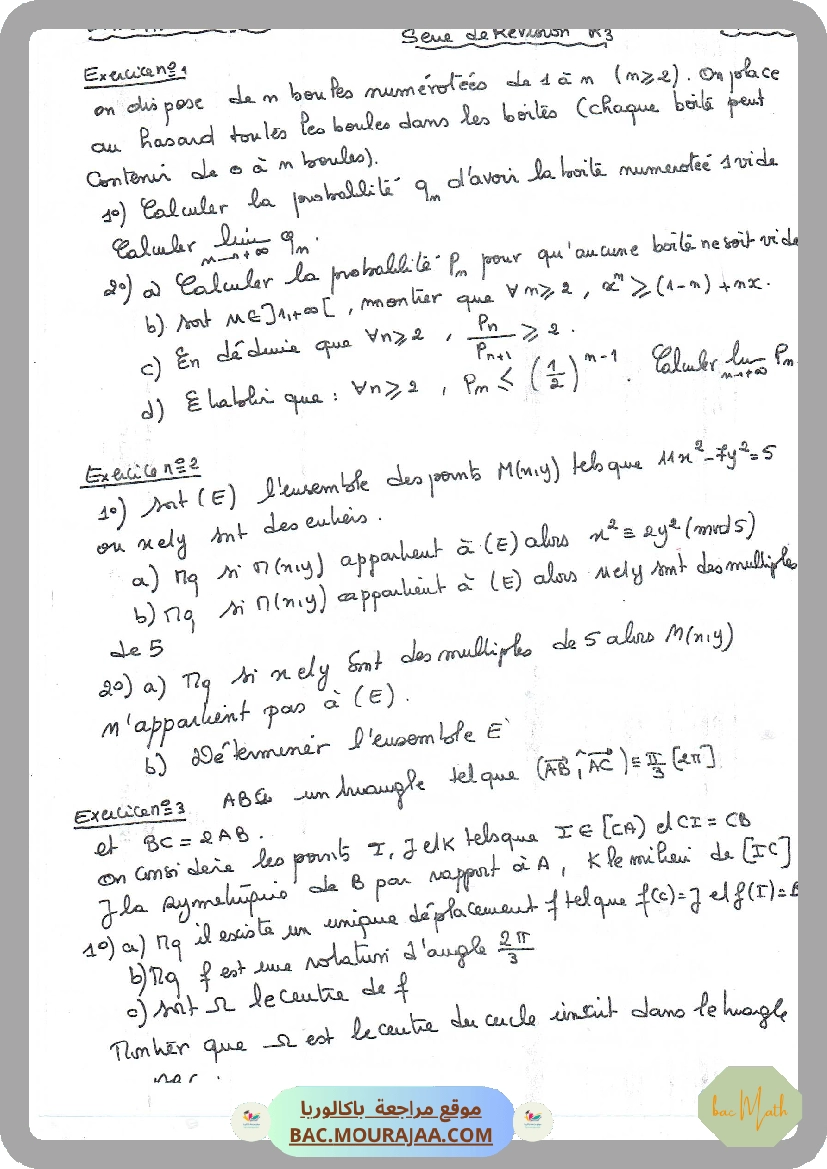 Serie de Revision N3
Exercice n°1
on dispose de n boules numérotées de 1 à n (n ≥ 2). On place
au hasard toutes les boules dans les boites (chaque boite peut
contenir de 0 à n boules).
1°) Calculer la probabilité q_n d'avoir la boite numerotée 1 vide
Calculer lim_{n→+∞} q_n.
2°) a) Calculer la probabilité P_n pour qu'aucune boite ne soit vide
b) soit x ∈ ]1,+∞[, montrer que ∀n ≥ 2, x^n ≥ (1-n) + nx.
c) En déduire que ∀n ≥ 2, P_n / P_{n+1} ≥ 2.
d) Etablir que : ∀n ≥ 2, P_n ≤ (1/2)^{n-1}. Calculer lim_{n→+∞} P_n
Exercice n°2
1°) soit (E) l'ensemble des points M(x,y) tels que 11x² - 7y² = 5
ou x et y snt des entiers.
a) Mq si M(x,y) appartient à (E) alors x² ≡ 2y² (mod 5)
b) Mq si M(x,y) appartient à (E) alors x et y sont des multiples
de 5
2°) a) Mq si x et y sont des multiples de 5 alors M(x,y)
n'appartient pas à (E).
b) Déterminer l'ensemble E
Exercice n°3 ABC un triangle tel que (AB, AC) ≡ π/3 [2π]
et BC = 2AB.
On considère les points I, J et K tels que I ∈ [CA) et CI = CB
J la symetrique de B par rapport à A, K le milieu de [IC]
1°) a) Mq il existe un unique déplacement f tel que f(C)=J et f(I)=B
b) Mq f est une rotation d'angle 2π/3
c) soit Ω le centre de f
Montrer que Ω est le centre du cercle inscrit dans le triangle
موقع مراجعة باكالوريا
BAC.MOURAJAA.COM
bac Math